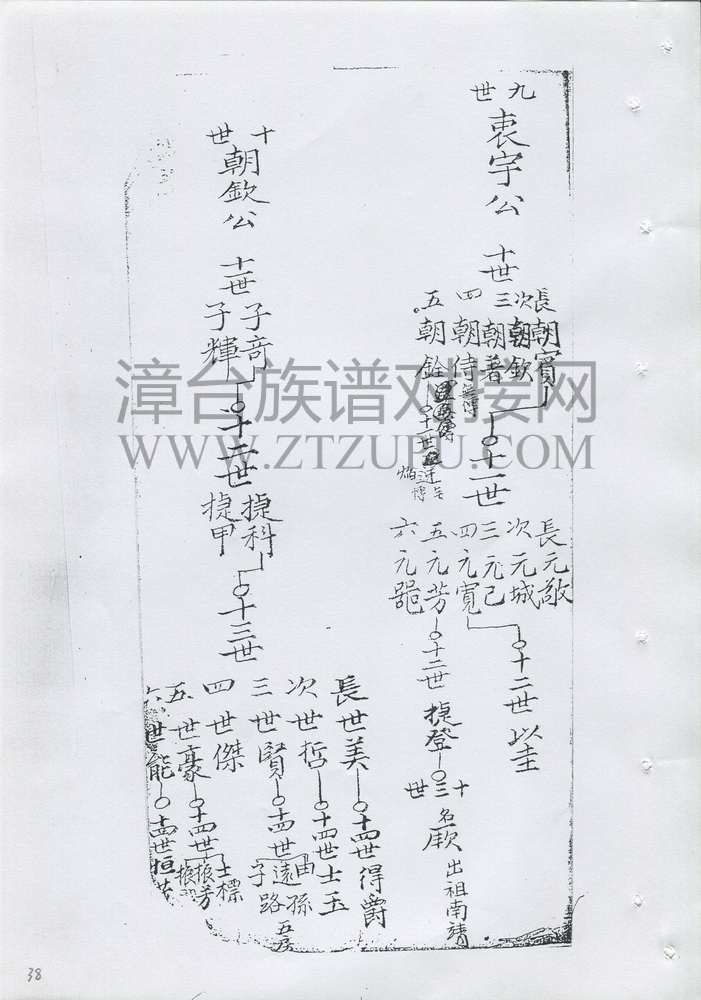 九世
衷宇公
十世
長朝賓
次朝欽
三朝普
四朝時
五朝銓
十一世
長元敬
次元城
三元己
四元寬
五元芳
六元器
十二世
以圭
十二世
捷登
十三世
名欣
出祖南靖
十世
朝欽公
十一世
子奇
子輝
十二世
捷科
捷甲
十三世
長世美
次世哲
三世賢
四世傑
五世豪
六世能
十四世得爵
十四世士玉
十四世
由孫
遠
五房
子路
十四世
士標
振芳
十四世恒
漳台族谱对接网
WWW.ZTZUPU.COM
38